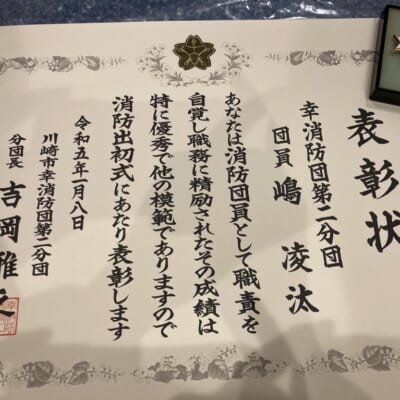 表彰状
幸消防団第二分団
団員 嶋 凌汰
あなたは消防団員として職責を
自覚し職務に精励されたその成績は
特に優秀で他の模範でありますので
消防出初式にあたり表彰します
令和五年一月八日
川崎市幸消防団第二分団
分団長 吉岡雅